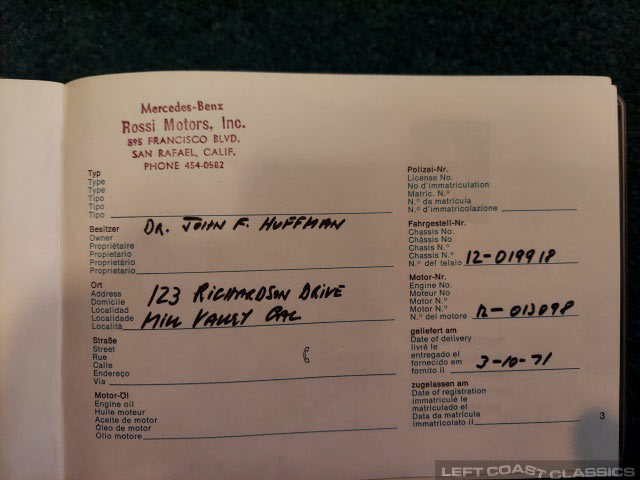 Mercedes-Benz
Rossi Motors, Inc.
895 FRANCISCO BLVD.
SAN RAFAEL, CALIF.
PHONE 454-0582
Typ
Type
Type
Tipo
Tipo
Tipo
Besitzer
Owner
Propriétaire
Propietario
Proprietário
Proprietario
DR. JOHN F. HUFFMAN
Ort
Address
Domicile
Localidad
Localidade
Località
123 RICHARDSON DRIVE
MILL VALLEY CAL
Straße
Street
Rue
Calle
Endereço
Via
Motor-Öl
Engine oil
Huile moteur
Aceite de motor
Óleo de motor
Olio motore
Polizei-Nr.
License No.
No d'immatriculation
Matric. N.º
N.º da matrícula
N.º d'immatricolazione
Fahrgestell-Nr.
Chassis No.
Châssis No
Chasis N.º
Chassis N.º
N.º del telaio 12-019918
Motor-Nr.
Engine No.
Moteur No
Motor N.º
Motor N.º
N.º del motore 12-013098
geliefert am
Date of delivery
livré le
entregado el
fornecido em
fornito il 3-10-71
zugelassen am
Date of registration
immatriculé le
matriculado el
Data da matrícula
immatricolato il
3
LEFT COAST CLASSICS